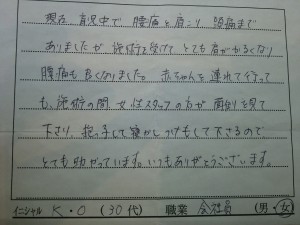 現在、育児中で 腰痛と肩こり 頭痛まで
ありましたが 施術を受けて とても肩がかるくなり
腰痛も良くなりました。 赤ちゃんを連れて行って
も、施術の間 スタッフの方が 面倒を見て
下さり、抱っ子して寝かしつけもして下さるので
とても助かっています。いつもありがとうございます。
イニシャル K・O (30代) 職業 会社員 (男・女)